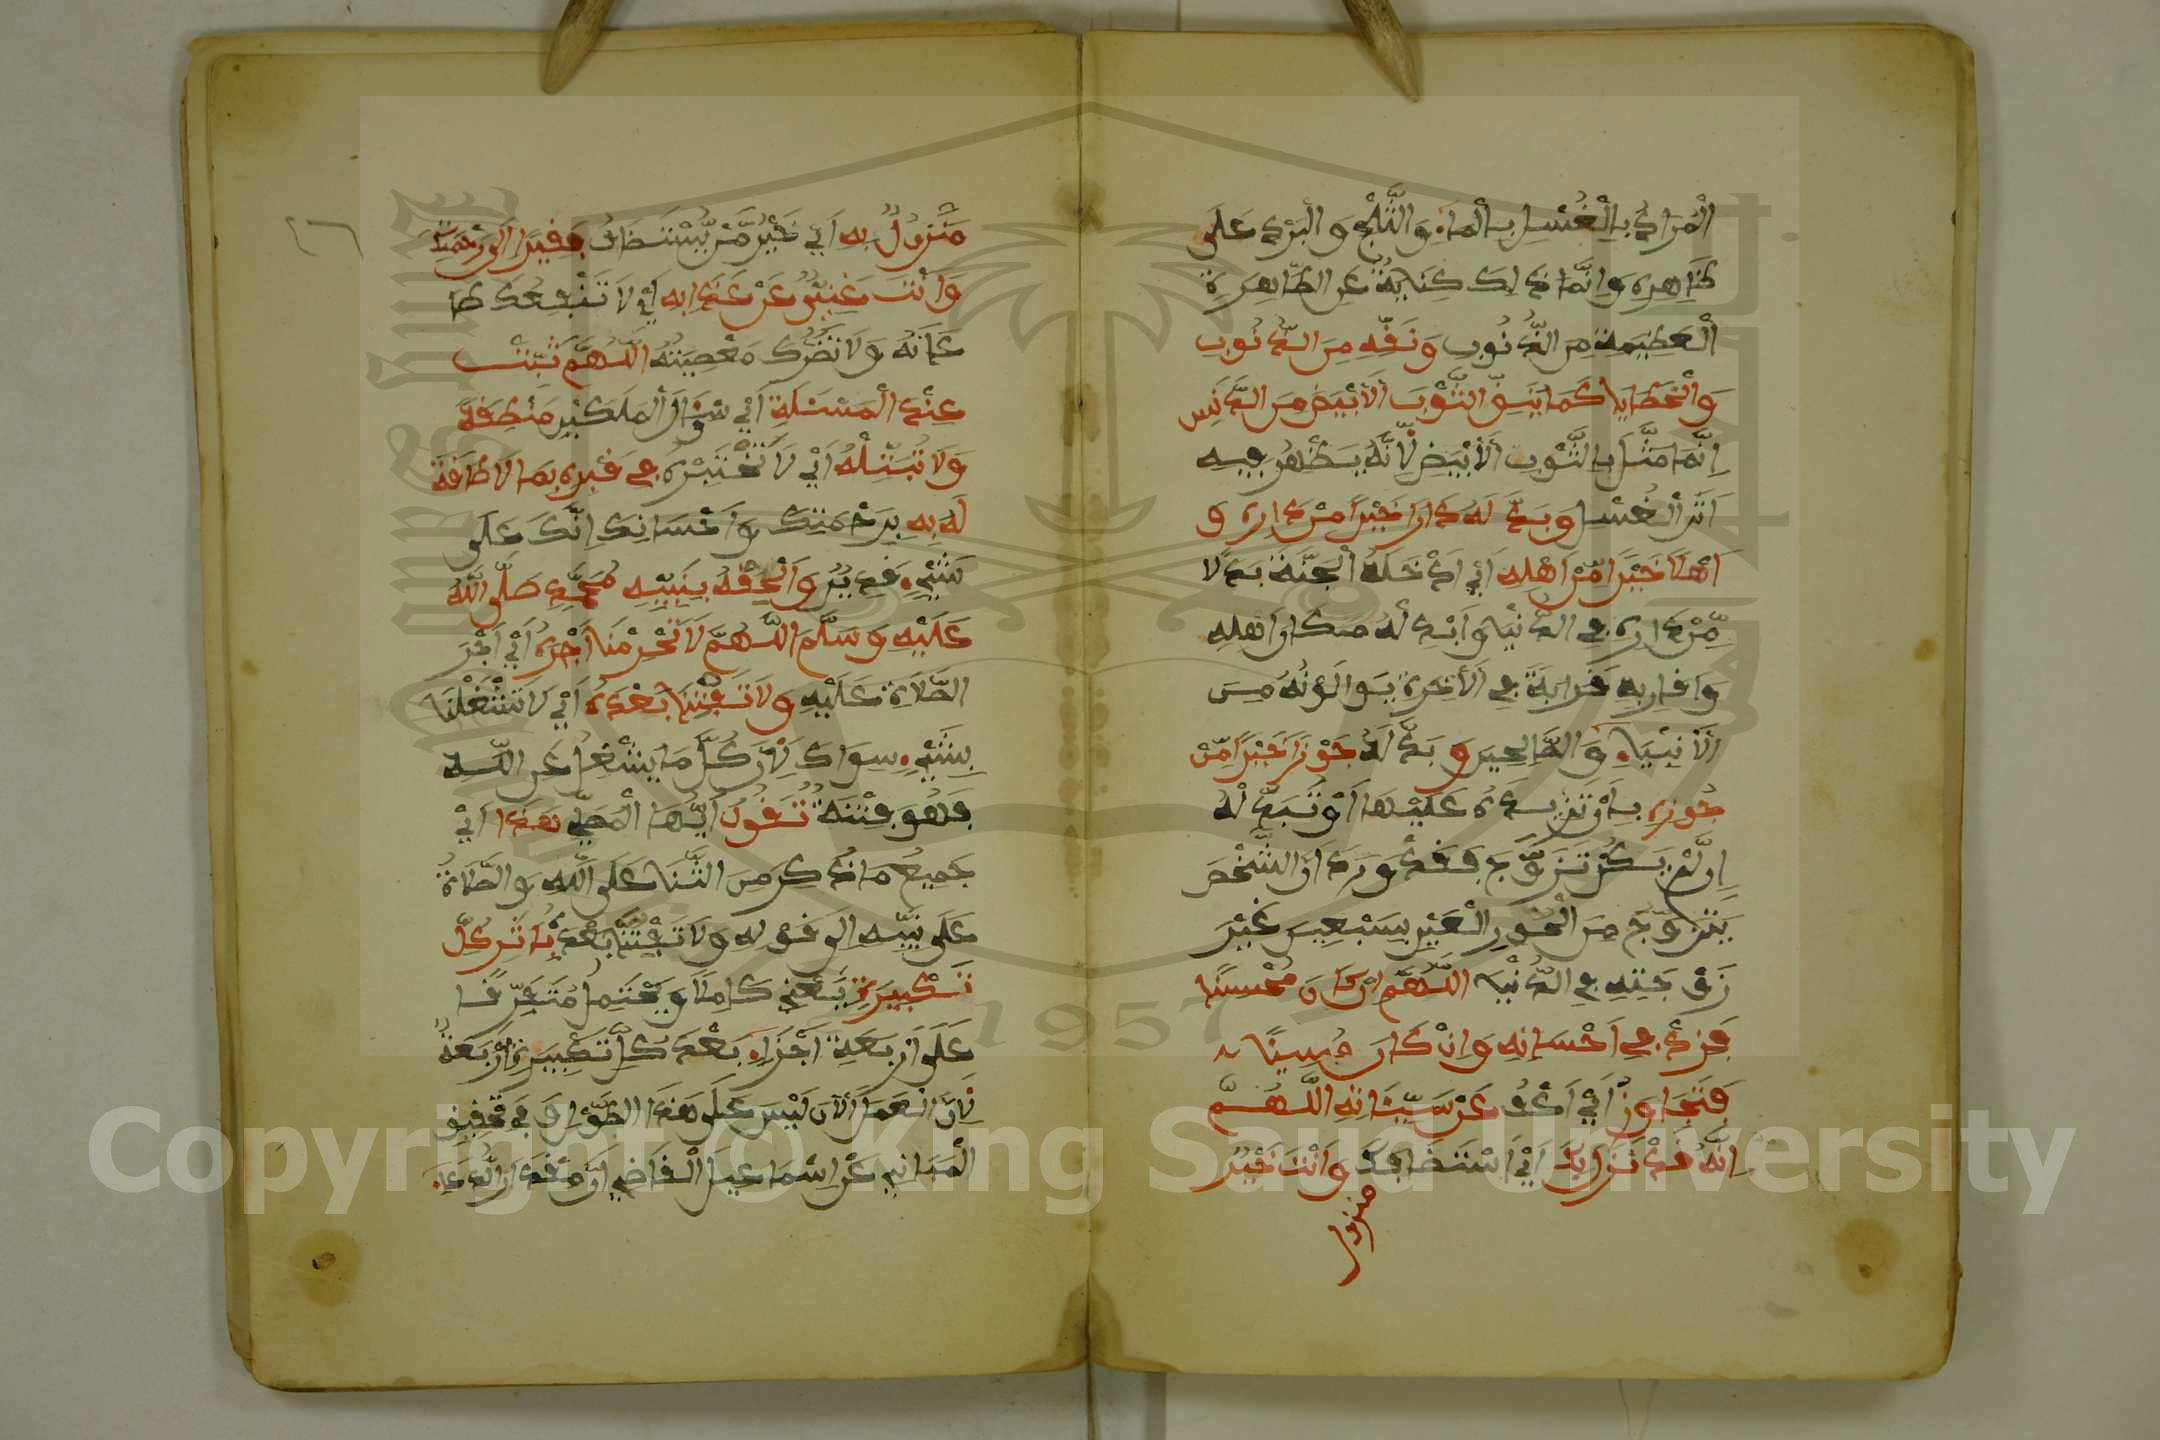 الْمُرَادُ بِالْغُسْلِ بِالْمَاءِ وَالثَّلْجِ وَالْبَرَدِ عَلَى
ظَاهِرِهِ وَإِنَّمَا ذَلِكَ كِنَايَةٌ عَنِ الطَّاهِرَةِ
الْعَظِيمَةِ مِنَ الذُّنُوبِ وَنَقِّهِ مِنَ الذُّنُوبِ
وَالْخَطَايَا كَمَا يُنَقَّى الثَّوْبُ الْأَبْيَضُ مِنَ الدَّنَسِ
إِنَّمَا مَثَّلَ بِالثَّوْبِ الْأَبْيَضِ لِأَنَّهُ يَظْهَرُ فِيهِ
أَثَرُ الْغُسْلِ وَبَدِّلْهُ دَارًا خَيْرًا مِنْ دَارِهِ وَ
أَهْلًا خَيْرًا مِنْ أَهْلِهِ أَيْ أَدْخِلْهُ الْجَنَّةَ بَدَلًا
مِّنْ دَارِهِ فِي الدُّنْيَا وَأَبْدِلْهُ مَكَانَ أَهْلِهِ
وَأَقَارِبِهِ قَرَابَةً فِي الْآخِرَةِ يُوَالُونَهُ مِنَ
الْأَنْبِيَاءِ وَالصَّالِحِينَ وَبَدِّلْهُ جَوْزًا خَيْرًا مِّنْ
جَوْزِهِ بِأَنْ تَزِيدَهُ عَلَيْهَا أَوْ تُبَدِّلْهُ
إِنْ لَّمْ يَكُنْ تَزَوَّجَ فَقَدْ وَرَدَ أَنَّ الشَّخْصَ
يَتَزَوَّجُ مِنَ الْحُورِ الْعِينِ بِسَبْعِينَ غَيْرَ
زَوْجَتِهِ فِي الدُّنْيَا اللَّهُمَّ إِنْ كَانَ مُحْسِنًا
فَزِدْ فِي إِحْسَانِهِ وَإِنْ كَانَ مُسِيئًا
فَتَجَاوَزْ أَيْ اعْفُ عَنْ سَيِّئَاتِهِ اللَّهُمَّ
إِنَّهُ قَدْ نَزَلَ بِكَ أَيْ اسْتَضَافَكَ وَأَنْتَ خَيْرُ
منزول
مَنْزُولٍ بِهِ أَيْ خَيْرُ مَنْ يُسْتَضَافُ فَقِيرًا إِلَى رَحْمَتِكَ
وَأَنْتَ غَنِيٌّ عَنْ عَذَابِهِ أَيْ لَا تَنْفَعُكَ طَا
عَاتُهُ وَلَا تَضُرُّكَ مَعْصِيَتُهُ اللَّهُمَّ ثَبِّتْ
عِنْدَ الْمَسْئَلَةِ أَيْ سُؤَالِ الْمَلَكَيْنِ مَنْطِقَهُ
وَلَا تُبْتَلِهِ أَيْ لَا تَخْتَبِرْهُ فِي قَبْرِهِ بِمَا لَا طَاقَةَ
لَهُ بِهِ بِرَحْمَتِكَ وَإِحْسَانِكَ إِنَّكَ عَلَى كُلِّ
شَيْءٍ قَدِيرٌ وَأَلْحِقْهُ بِنَبِيِّهِ مُحَمَّدٍ صَلَّى اللهُ
عَلَيْهِ وَسَلَّمَ اللَّهُمَّ لَا تَحْرِمْنَا أَجْرَهُ أَيْ أَجْرَ
الصَّلَاةِ عَلَيْهِ وَلَا تَفْتِنَّا بَعْدَهُ أَيْ لَا تَشْغَلْنَا
بِشَيْءٍ سِوَاكَ لِأَنَّ كُلَّ مَا يَشْغَلُ عَنِ اللهِ
فَهُوَ فِتْنَةٌ تَقُولُ أَيُّهَا الْمُصَلِّي هَذَا أَيْ
جَمِيعُ مَا ذُكِرَ مِنَ الثَّنَاءِ عَلَى اللهِ وَالصَّلَاةُ
عَلَى نَبِيِّهِ إِلَى قَوْلِهِ وَلَا تَفْتِنَّا بَعْدَهُ بِإِثْرِ كُلِّ
تَكْبِيرَةٍ يَعْنِي كَامِلًا وَيَحْتَمِلُ مُتَفَرِّقًا
عَلَى أَرْبَعَةِ أَجْزَاءٍ بَعْدَ كُلِّ تَكْبِيرَةٍ أَرْبَعَةُ
لِأَنَّ الْعَمَلَ الْآنَ لَيْسَ عَلَى هَذَا الطَّوْلِ وَفِي تَحْقِيقِ
الْمَبَانِي عَنْ إِسْمَاعِيلَ الْقَاضِي أَنَّ مِقْدَارَ الدُّعَاءِ